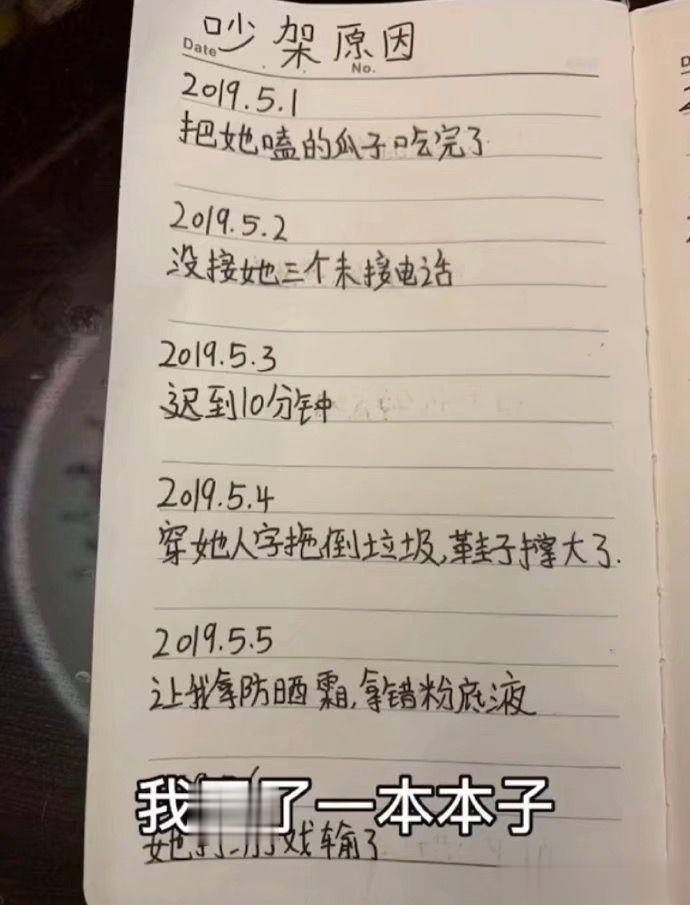 吵架原因
Date
No.
2019.5.1
把她嗑的瓜子吃完了
2019.5.2
没接她三个未接电话
2019.5.3
迟到10分钟
2019.5.4
穿她人字拖倒垃圾,鞋子撑大了.
2019.5.5
让我拿防晒霜,拿错粉底液
我 了一本本子
她 戏输了